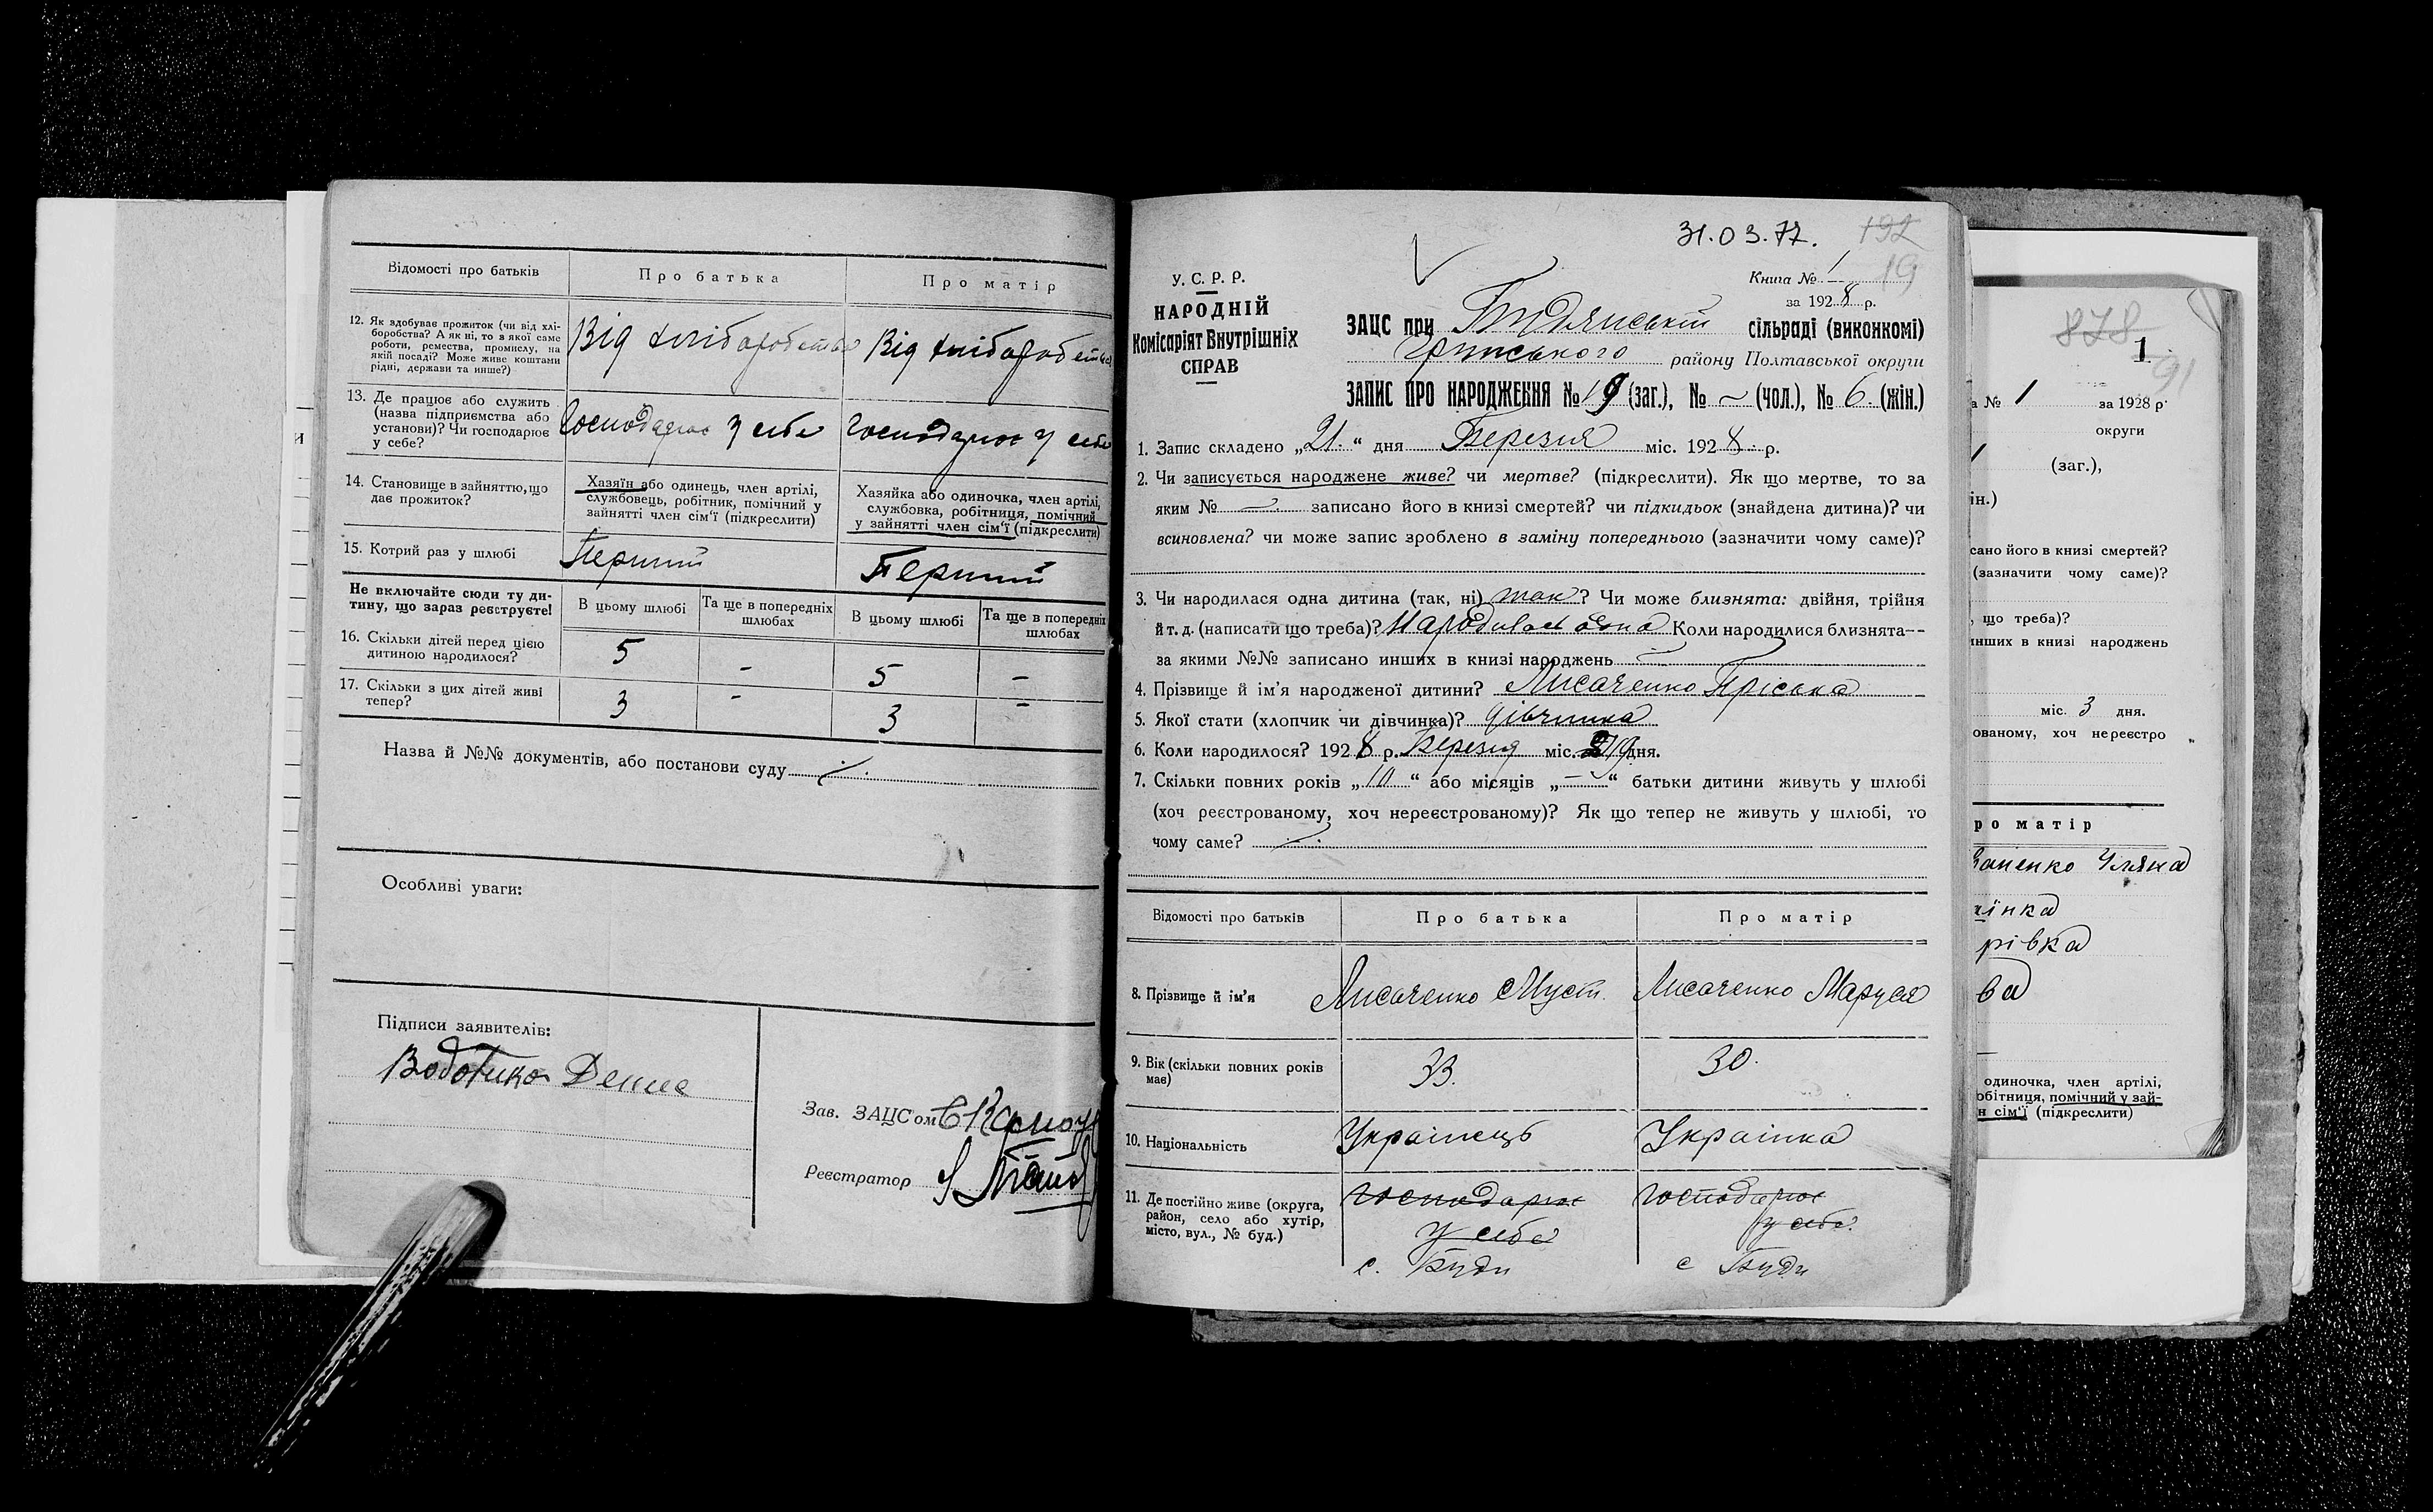 Відомості про батьків
Про батька
Про матір
12. Як здобуває прожиток (чи від хлі-
боробства? А як ні, то з якої саме
роботи, ремества, промислу, на
якій посаді? Може живе коштами
рідні, держави та инше?)
Від хліборобства
Від хліборобства
13. Де працює або служить
(назва підприємства або
установи)? Чи господарює
у себе?
Господарює у себе
Господарює у себе
14. Становище в зайняттю, що
дає прожиток?
Хазяїн або одинець, член артілі,
службовець, робітник, помічний у
зайнятті член сім'ї (підкреслити)
Хазяйка або одиночка, член артілі,
службовка, робітниця, помічний
у зайнятті член сім'ї (підкреслити)
15. Котрий раз у шлюбі
Перший
Перший
Не включайте сюди ту ди-
тину, що зараз реєструєте!
В цьому шлюбі
Та ще в попередніх
шлюбах
В цьому шлюбі
Та ще в попередніх
шлюбах
16. Скільки дітей перед цією
дитиною народилося?
5 - 5 -
17. Скільки з цих дітей живі
тепер?
3 - 3 -
Назва й №№ документів, або постанови суду
Особливі уваги:
Підписи заявителів:
Денис
Зав. ЗАЦС'ом
Реєстратор
31.03.77.
192
19
У.С.Р.Р.
НАРОДНІЙ
Комісаріят Внутрішніх
СПРАВ
Книга № 1
за 1928 р.
ЗАЦС при Будянській сільраді (виконкомі)
Грунського району Полтавської округи
ЗАПИС ПРО НАРОДЖЕННЯ № 19 (заг.), № ~ (чол.), № 6. (жін.)
1. Запис складено „21.“ дня Березня міс. 1928 р.
2. Чи записується народжене живе? чи мертве? (підкреслити). Як що мертве, то за
яким № -. записано його в книзі смертей? чи підкидьок (знайдена дитина)? чи
всиновлена? чи може запис зроблено в заміну попереднього (зазначити чому саме)?
3. Чи народилася одна дитина (так, ні) так? Чи може близнята: двійня, трійня
й т. д. (написати що треба)? Народилась одна Коли народилися близнята—
за якими №№ записано инших в книзі народжень
4. Прізвище й ім'я народженої дитини? Лисаченко Пріська
5. Якої стати (хлопчик чи дівчинка)? дівчинка
6. Коли народилося? 1928 р. Березня міс. 19 дня.
7. Скільки повних років „10“ або місяців „—“ батьки дитини живуть у шлюбі
(хоч реєстрованому, хоч нереєстрованому)? Як що тепер не живуть у шлюбі, то
чому саме?
Відомості про батьків
Про батька
Про матір
8. Прізвище й ім'я
Лисаченко Муст.
Лисаченко Маруся
9. Вік (скільки повних років
має)
33.
30.
10. Національність
Українець
Українка
11. Де постійно живе (округа,
район, село або хутір,
місто, вул., № буд.)
господарює
у себе
с. Буди
господарює
у себе.
с Буди
878
1.
91
а № 1 за 1928 р.
округи
(заг.),
ін.)
сано його в книзі смертей?
(зазначити чому саме)?
, що треба)?
инших в книзі народжень
міс. 3 дня.
ованому, хоч нереєстро
ро матір
Уляна
їнка
рівка
ва
одиночка, член артілі,
обітниця, помічний у зай-
н сім'ї (підкреслити)